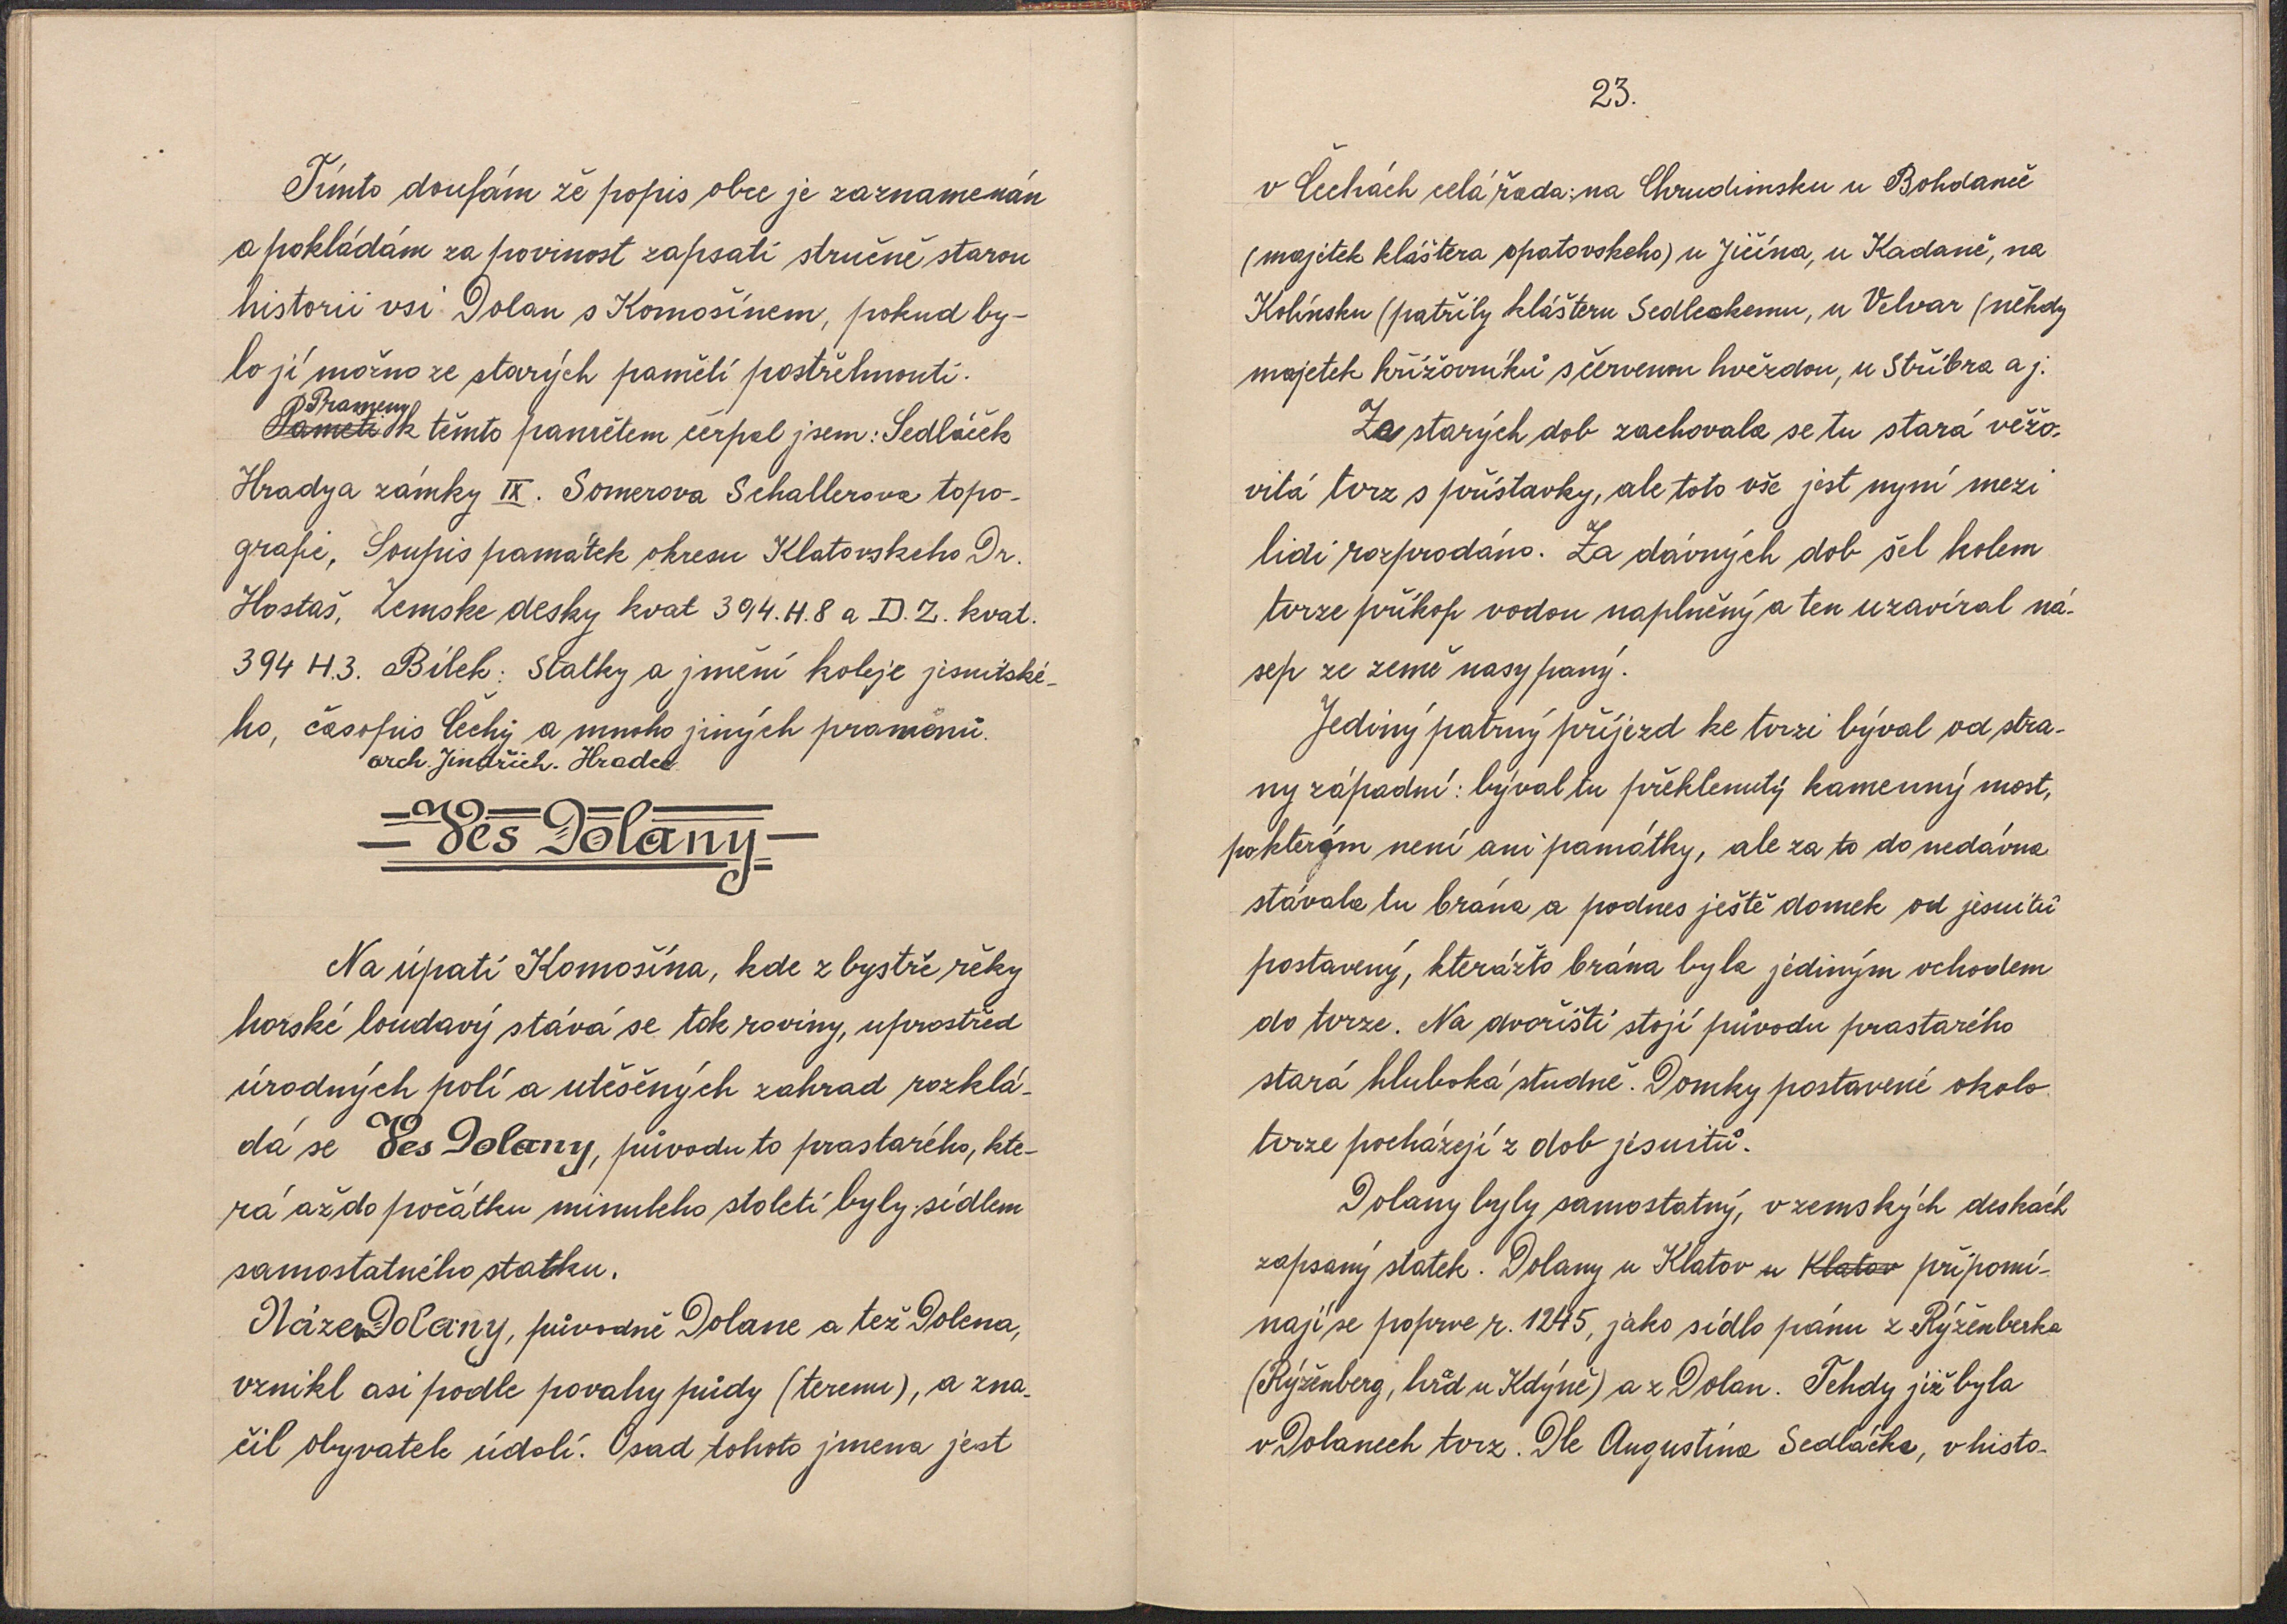 Tímto doufám že popis obce je zaznamenán
a pokládám za povinost zapsati stručně starou
historii vsi Dolan s Komošínem, pokud by-
lo jí možno ze starých pamětí postřehnouti.
Prameny
Pameti k těmto pamětem čerpal jsem: Sedláček
Hrady a zámky IX. Somerova Schallerova topo-
grafie, Soupis památek okresu Klatovskeho Dr.
Hostaš, Zemske desky kvat 394. H. 8 a D. Z. kvat.
394 H. 3. Bílek: Statky a jmění koleje jesuitské-
ho, časopis Čechy a mnoho jiných pramenů.
arch. Jindřich. Hradec
Ves Dolany
Na úpatí Komošína, kde z bystře řěky
horské loudavý stává se tok roviny, uprostřed
úrodných polí a utěšěných zahrad rozklá-
dá se Ves Dolany, původu to prastarého, kte-
rá až do počátku minuleho století byly sídlem
samostatného statku.
Název Dolany, původně Dolane a tež Dolena,
vznikl asi podle povahy půdy (terenu), a zna-
čil obyvatele údolí. Osad tohoto jmena jest
23.
v Čechách celá řada: na Chrudimsku u Bohdanče
(majetek kláštera opatovskeho) u Jičína, u Kadaně, na
Kolínsku (patřily klášteru Sedleckemu, u Velvar (někdy
majetek křižovníků s červenou hvězdou, u Stříbra a j.
Za starých dob zachovala se tu stará věžo-
vitá tvrz s přístavky, ale toto vše jest nyní mezi
lidi rozprodáno. Za dávných dob šel kolem
tvrze příkop vodou naplněný a ten uzavíral ná-
sep ze země nasypaný.
Jediný patrný příjezd ke tvrzi býval od stra-
ny západní: býval tu překlenutý kamenný most,
po kterým není ani památky, ale za to do nedávna
stávala tu brána a podnes ještě domek od jesuitů
postavený, kterážto brána byla jediným vchodem
do tvrze. Na dvoříšti stojí původu prastarého
stará hluboká studně. Domky postavené okolo
tvrze pocházejí z dob jesuitů.
Dolany byly samostatný, v zemských deskách
zapsaný statek. Dolany u Klatov u Klatov připomí-
nají se poprve r. 1245, jako sídlo pánu z Rýžěnberka
(Rýžěnberg, hrad u Kdýně) a z Dolan. Tehdy již byla
v Dolanech tvrz. Dle Augustina Sedláčka, v histo-